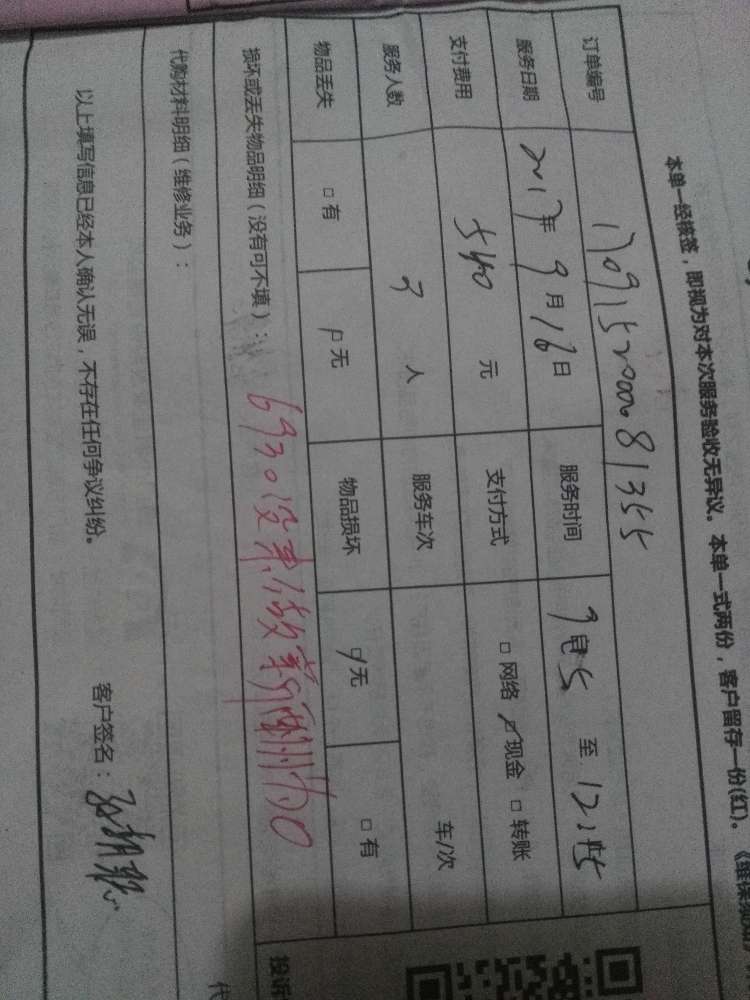 本单一经核签，即视为对本次服务验收无异议。本单一式两份，客户留存一份(红)。
订单编号 1709152000081355
服务日期 2017年9月16日 服务时间 9 至 12
支付费用 540 元 支付方式 □网络 现金 □转账
服务人数 3 人 服务车次 车/次
物品丢失 □有 无 物品损坏 无 □有
损坏或丢失物品明细（没有可不填）：
6930没来做薪酬为0
代购材料明细（维修业务）：
以上填写信息已经本人确认无误，不存在任何争议纠纷。
客户签名：
投诉
代